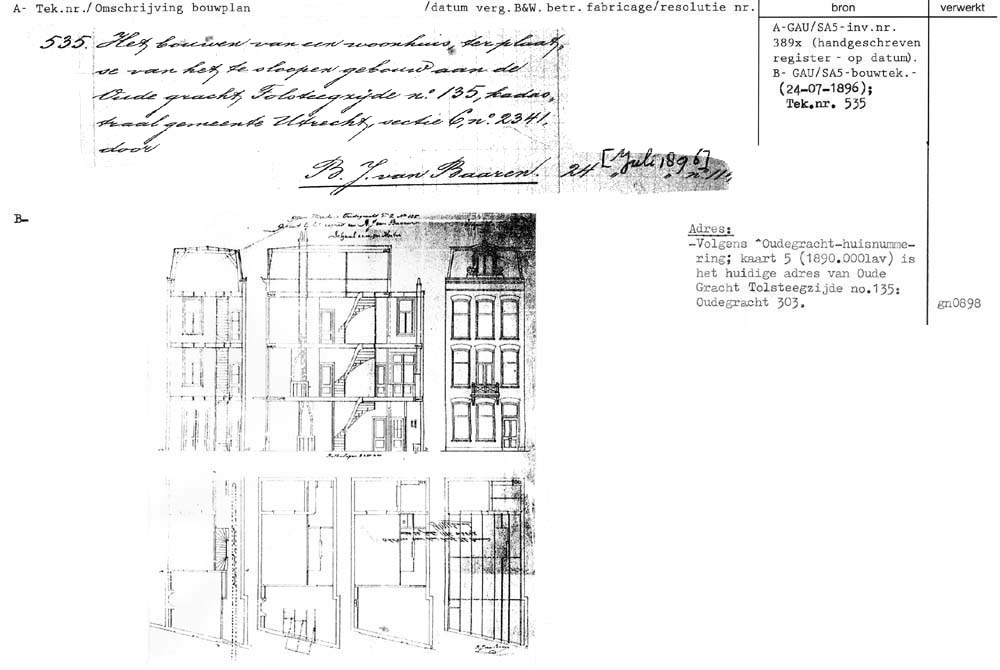 A- Tek.nr./Omschrijving bouwplan /datum verg.B&W. betr. fabricage/resolutie nr. bron verwerkt
535. Het bouwen van een woonhuis, ter plaat,
se van het te sloopen gebouw aan de
Oude gracht Tolsteegzijde no. 135, kadas,
traal gemeente Utrecht, sectie C, no. 2341,
door
B. J. van Baaren. 24 [Juli 1896]
A-GAU/SA5-inv.nr.
389x (handgeschreven
register - op datum).
B- GAU/SA5-bouwtek.-
(24-07-1896);
Tek.nr. 535
B-
Adres:
-Volgens ^Oudegracht-huisnumme-
ring; kaart 5 (1890.0001av) is
het huidige adres van Oude
Gracht Tolsteegzijde no.135:
Oudegracht 303.
gn0898